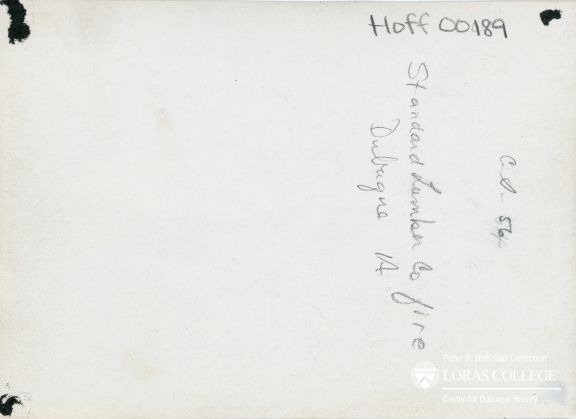 Hoff 00189
Standard Lumber Co fire
Dubuque IA
CS-564
Peter B. Hoffman Collection
LORAS COLLEGE
Center for Dubuque History